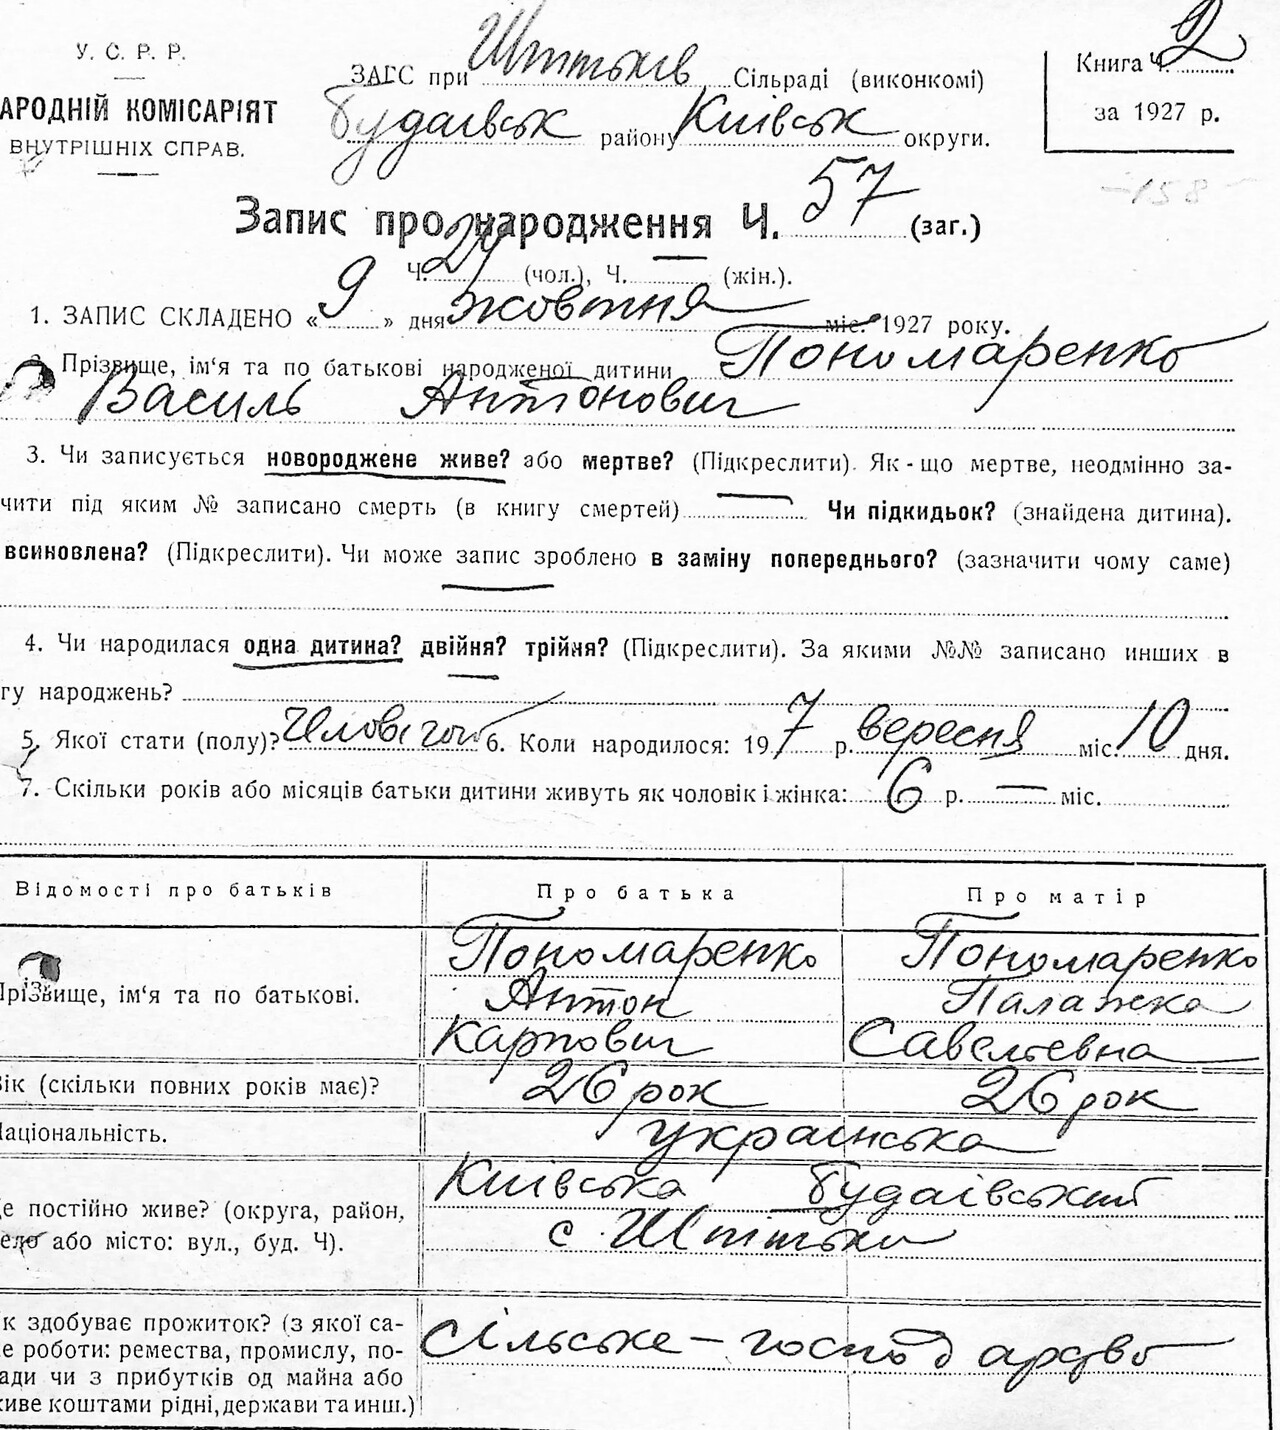 У. С. Р. Р.
АРОДНІЙ КОМІСАРІЯТ
ВНУТРІШНІХ СПРАВ.
ЗАГС при Шпітьків Сільраді (виконкомі)
Будаєвськ району Київськ округи.
Книга Ч. 2
за 1927 р.
158
Запис про народження Ч. 57 (заг.)
Ч. 29 (чол.), Ч. — (жін.).
1. ЗАПИС СКЛАДЕНО « 9 » дня жовтня міс. 1927 року.
2. Прізвище, ім‘я та по батькові народженої дитини Пономаренко
Василь Антонович
3. Чи записується новороджене живе? або мертве? (Підкреслити). Як-що мертве, неодмінно за-
чити під яким № записано смерть (в книгу смертей) — Чи підкидьок? (знайдена дитина).
всиновлена? (Підкреслити). Чи може запис зроблено в заміну попереднього? (зазначити чому саме)
—
4. Чи народилася одна дитина? двійня? трійня? (Підкреслити). За якими №№ записано инших в
гу народжень? —
5. Якої стати (полу)? Чоловічої 6. Коли народилося: 19 7 р. вересня міс. 10 дня.
7. Скільки років або місяців батьки дитини живуть як чоловік і жінка: 6 р. — міс.
Відомості про батьків Про батька Про матір
Прізвище, ім‘я та по батькові.
Пономаренко Пономаренко
Антон Палажка
Карпович Савелієвна
Вік (скільки повних років має)? 26 рок 26 рок
Національність. українська
де постійно живе? (округа, район, Київська Будаівський
село або місто: вул., буд. Ч). с. Шпітьки
к здобуває прожиток? (з якої са- Сільське – господарство
е роботи: ремества, промислу, по-
ади чи з прибутків од майна або
живе коштами рідні, держави та инш.)